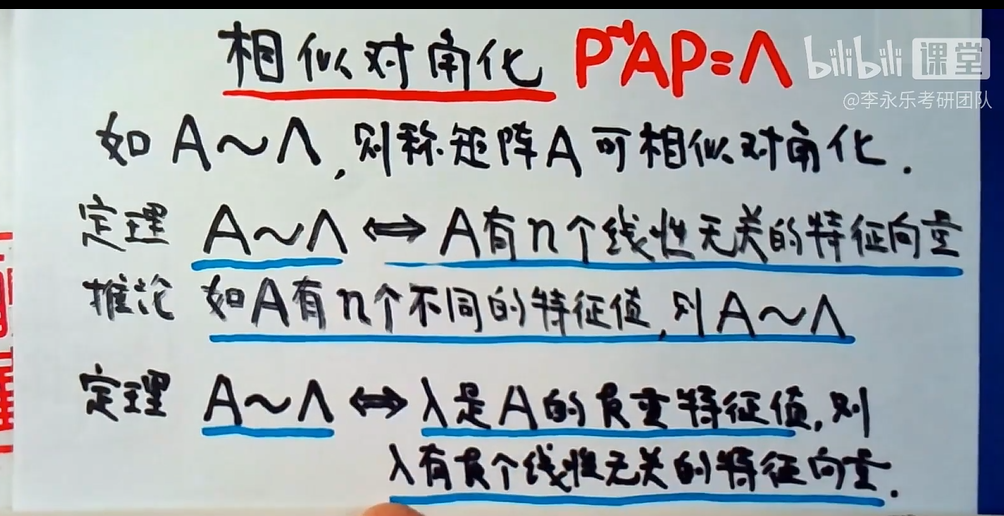 相似对角化 P⁻¹AP=Λ
bilibili 课堂
@李永乐考研团队
如 A~Λ,则称矩阵A可相似对角化.
定理 A~Λ ⇔ A有n个线性无关的特征向量
推论 如A有n个不同的特征值,则A~Λ
定理 A~Λ ⇔ λ是A的k重特征值,则
λ有k个线性无关的特征向量.